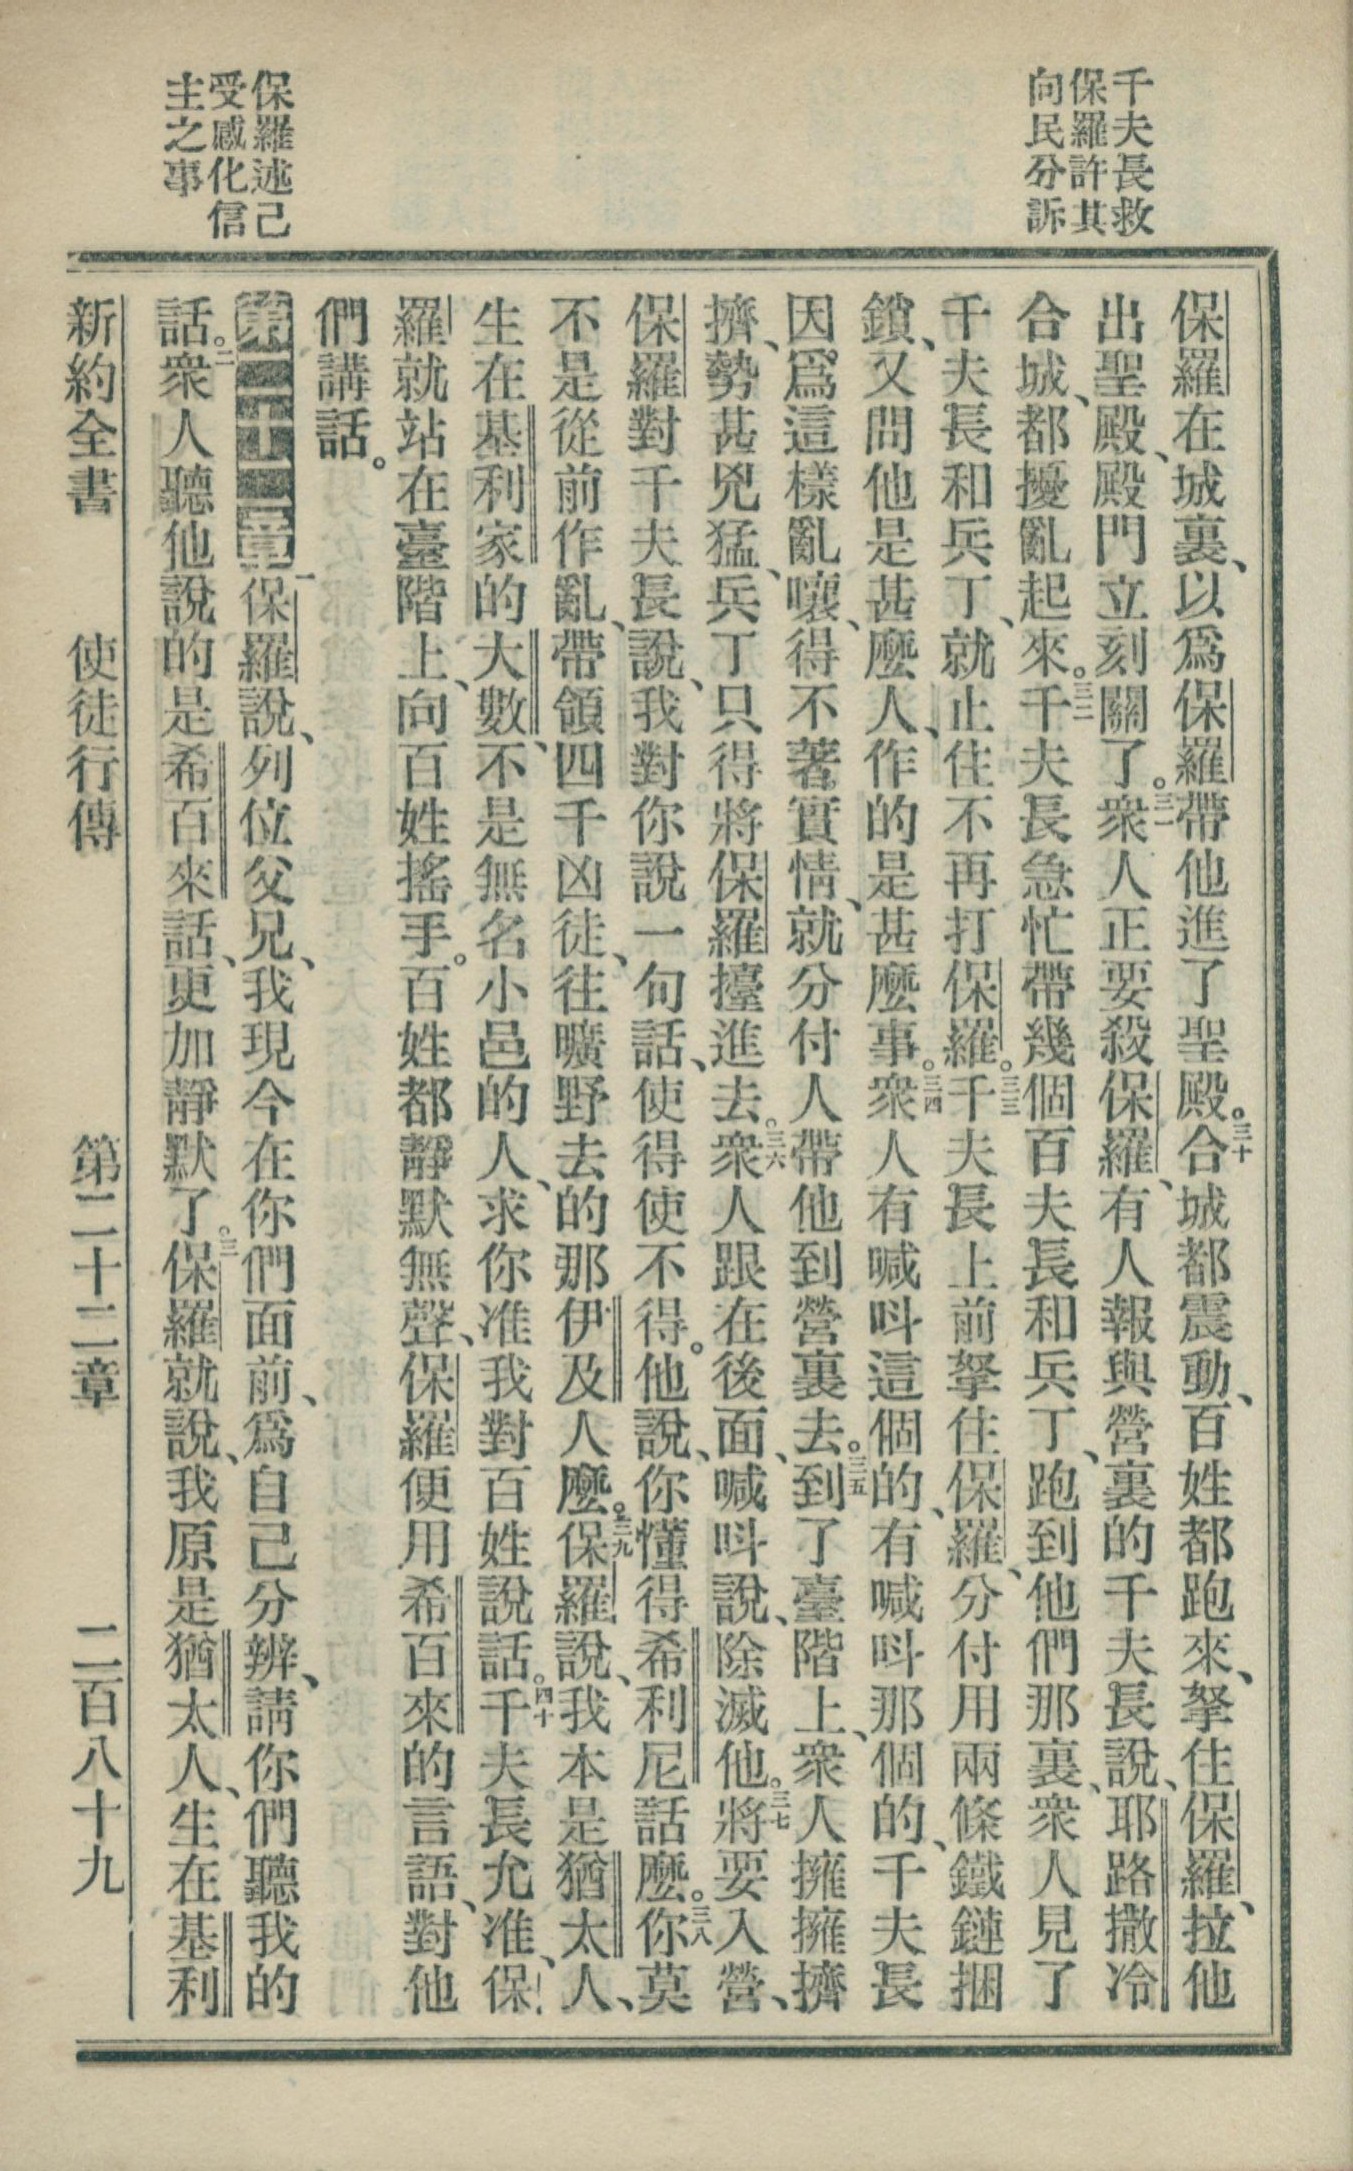 千夫長救
保羅許其
向民分訴
保羅述己
受感化信
主之事
保羅在城裏、以爲保羅帶他進了聖殿。三十合城都震動、百姓都跑來、拏住保羅、拉他
出聖殿、殿門立刻關了。三一衆人正要殺保羅、有人報與營裏的千夫長說、耶路撒冷
合城、都擾亂起來。三二千夫長急忙帶幾個百夫長和兵丁、跑到他們那裏、衆人見了
千夫長和兵丁、就止住不再打保羅。三三千夫長上前拏住保羅、分付用兩條鐵鏈捆
鎖、又問他是甚麼人、作的是甚麼事。三四衆人有喊呌這個的、有喊呌那個的、千夫長
因爲這樣亂嚷、得不著實情、就分付人帶他到營裏去。三五到了臺階上、衆人擁擁擠
擠、勢甚兇猛、兵丁只得將保羅擡進去。三六衆人跟在後面、喊呌說、除滅他。三七將要入營、
保羅對千夫長說、我對你說一句話、使得使不得。他說、你懂得希利尼話麼。三八你莫
不是從前作亂、帶領四千凶徒、往曠野去的那伊及人麼。三九保羅說、我本是猶太人、
生在基利家的大數、不是無名小邑的人、求你准我對百姓說話。四十千夫長允准、保
羅就站在臺階上、向百姓搖手。百姓都靜默無聲、保羅便用希百來的言語、對他
們講話。
第二十二章一保羅說、列位父兄、我現今在你們面前、爲自己分辨、請你們聽我的
話。二衆人聽他說的是希百來話、更加靜默了。三保羅就說、我原是猶太人、生在基利
新約全書 使徒行傳 第二十二章 二百八十九